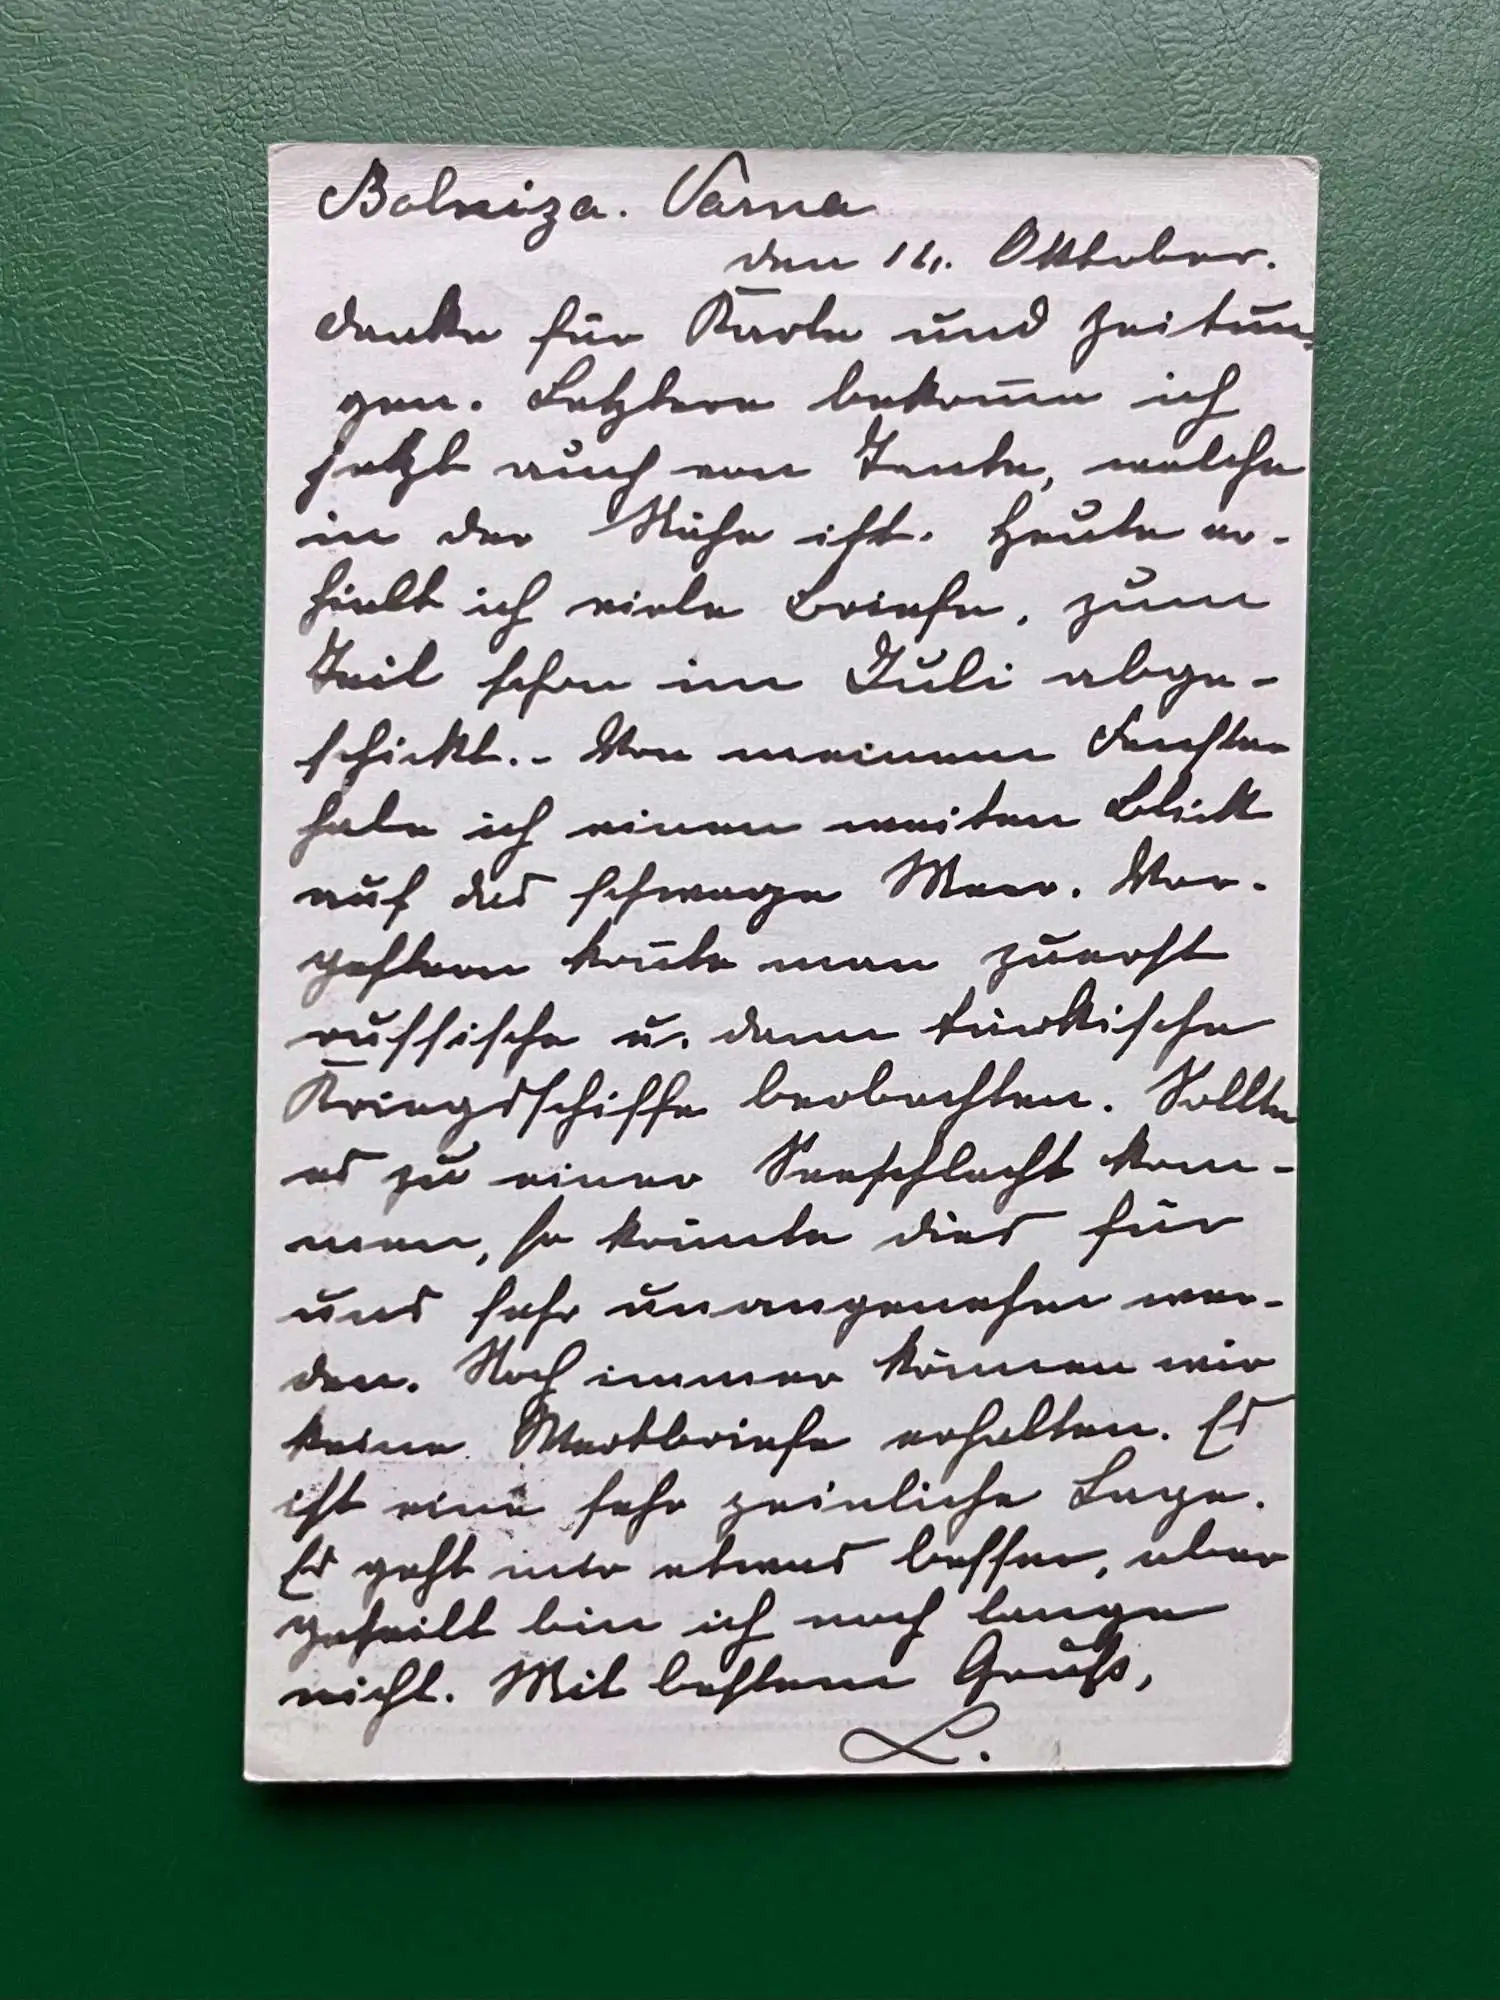 Bolniza. Varna
den 11. Oktober.
danke für Karte und Zeitun-
gen. Letztere bekom̅e ich
jetzt auch von Tante, welche
in der Nähe ist. Heute er-
hielt ich viele Briefe, zum
Teil schon im Juli abge-
schickt.- Von meinem Fenster
habe ich einen weiten Blick
auf das schwarze Meer. Vor-
gestern kon̅te man zuerst
russische u. dann türkische
Kriegsschiffe beobachten. Sollte
es zu einer Seeschlacht kom-
men, so könnte dies für
uns sehr unangenehm wer-
den. Noch immer können wir
keine Wertbriefe erhalten. Es
ist eine sehr peinliche Lage.
Es geht mir etwas besser, aber
geheilt bin ich noch lange
nicht. Mit bestem Gruß,
L.